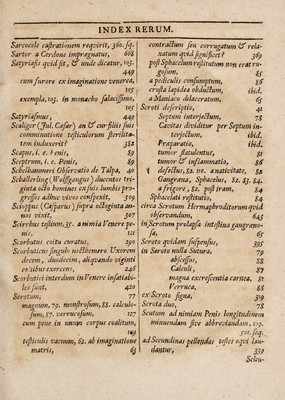 INDEX RERUM.
Sarcocele castrationem reqvirit, 360. sq.
Sartor a Cerdone impraegnatus, 608
Satyriasis quid sit, & unde dicatur, 103.
449
cum furore ex imaginatione venerea,
105
exempla, 105. in monacho salacissimo,
105
Satyriasmus, 449
Scaliger (Jul. Caesar) an & cur filiis suis
comminutione testiculorum sterilita-
tem induxerit? 382
Scapus, i. e. Penis, 89
Sceptrum, i. e. Penis, 89
Schelhammeri Observatio de Talpa, 40
Schallerling (Wolffgangus) ducentos tri-
ginta octo homines ex suis lumbis pro-
gressos adhuc vivos conspexit, 309
Scioppius (Casparus) supra octoginta an-
nos vixit, 307
Scirrhus testium, 35. a nimia Venere pe-
nis, 121
Scorbutus coitu curatus, 290
Scorbuticus singulo noctthemero Uxorem
decem, duodecim, aliquando viginti
coitibus exercens, 246
Scorbutici interdum in Venere insatiabi-
les sunt, 420
Scrotum, 77
magnum, 79. monstrosum, 88. calculo-
sum, 87. verrucosum, 127
cum pene in unum corpus coalitum,
119
testiculis vacuum, 62. ab imaginatione
matris, 63
contractum seu corrugatum & rela-
xatum qvid significet? 369
post Sphacelum restitutum non erat ru-
gosum, 85
a pediculis consumptum, 86
crusta lapidea obductum, ibid.
a Maniaco dilaceratum, 65
Scroti descriptio, 41
Septum interjectum, 78
Cavitas dividitur per Septum in-
terjectum, ibid.
Praeparatio, ibid.
tumor flatulentus, 81
tumor & inflammatio, 86
defectus, 82. no. a nativitate, 82
Gangraena, Sphacelus, 82. 83. 84.
a frigore, 82. post iram, 84
Sphacelati restitutio, 84
circa Scrotum Hermaphroditorum quid
observandum, 643
in Scrotum prolapsa intestina gangraeno-
sa, 87
Scroto quidam suspensus, 395
in Scroto nulla Sutura, 79
abscessus, 88
Calculi, 87
magna excrescentia carnea, 81
Verruca, 88
ex Scroto signa, 319
Scrota duo, 78
Scutum ad nimiam Penis longitudinem
minuendam sive abbreviandam, 109.
501. seq.
ad Secundinas pellendas testes eqvi lau-
dantur, 339
Secu-